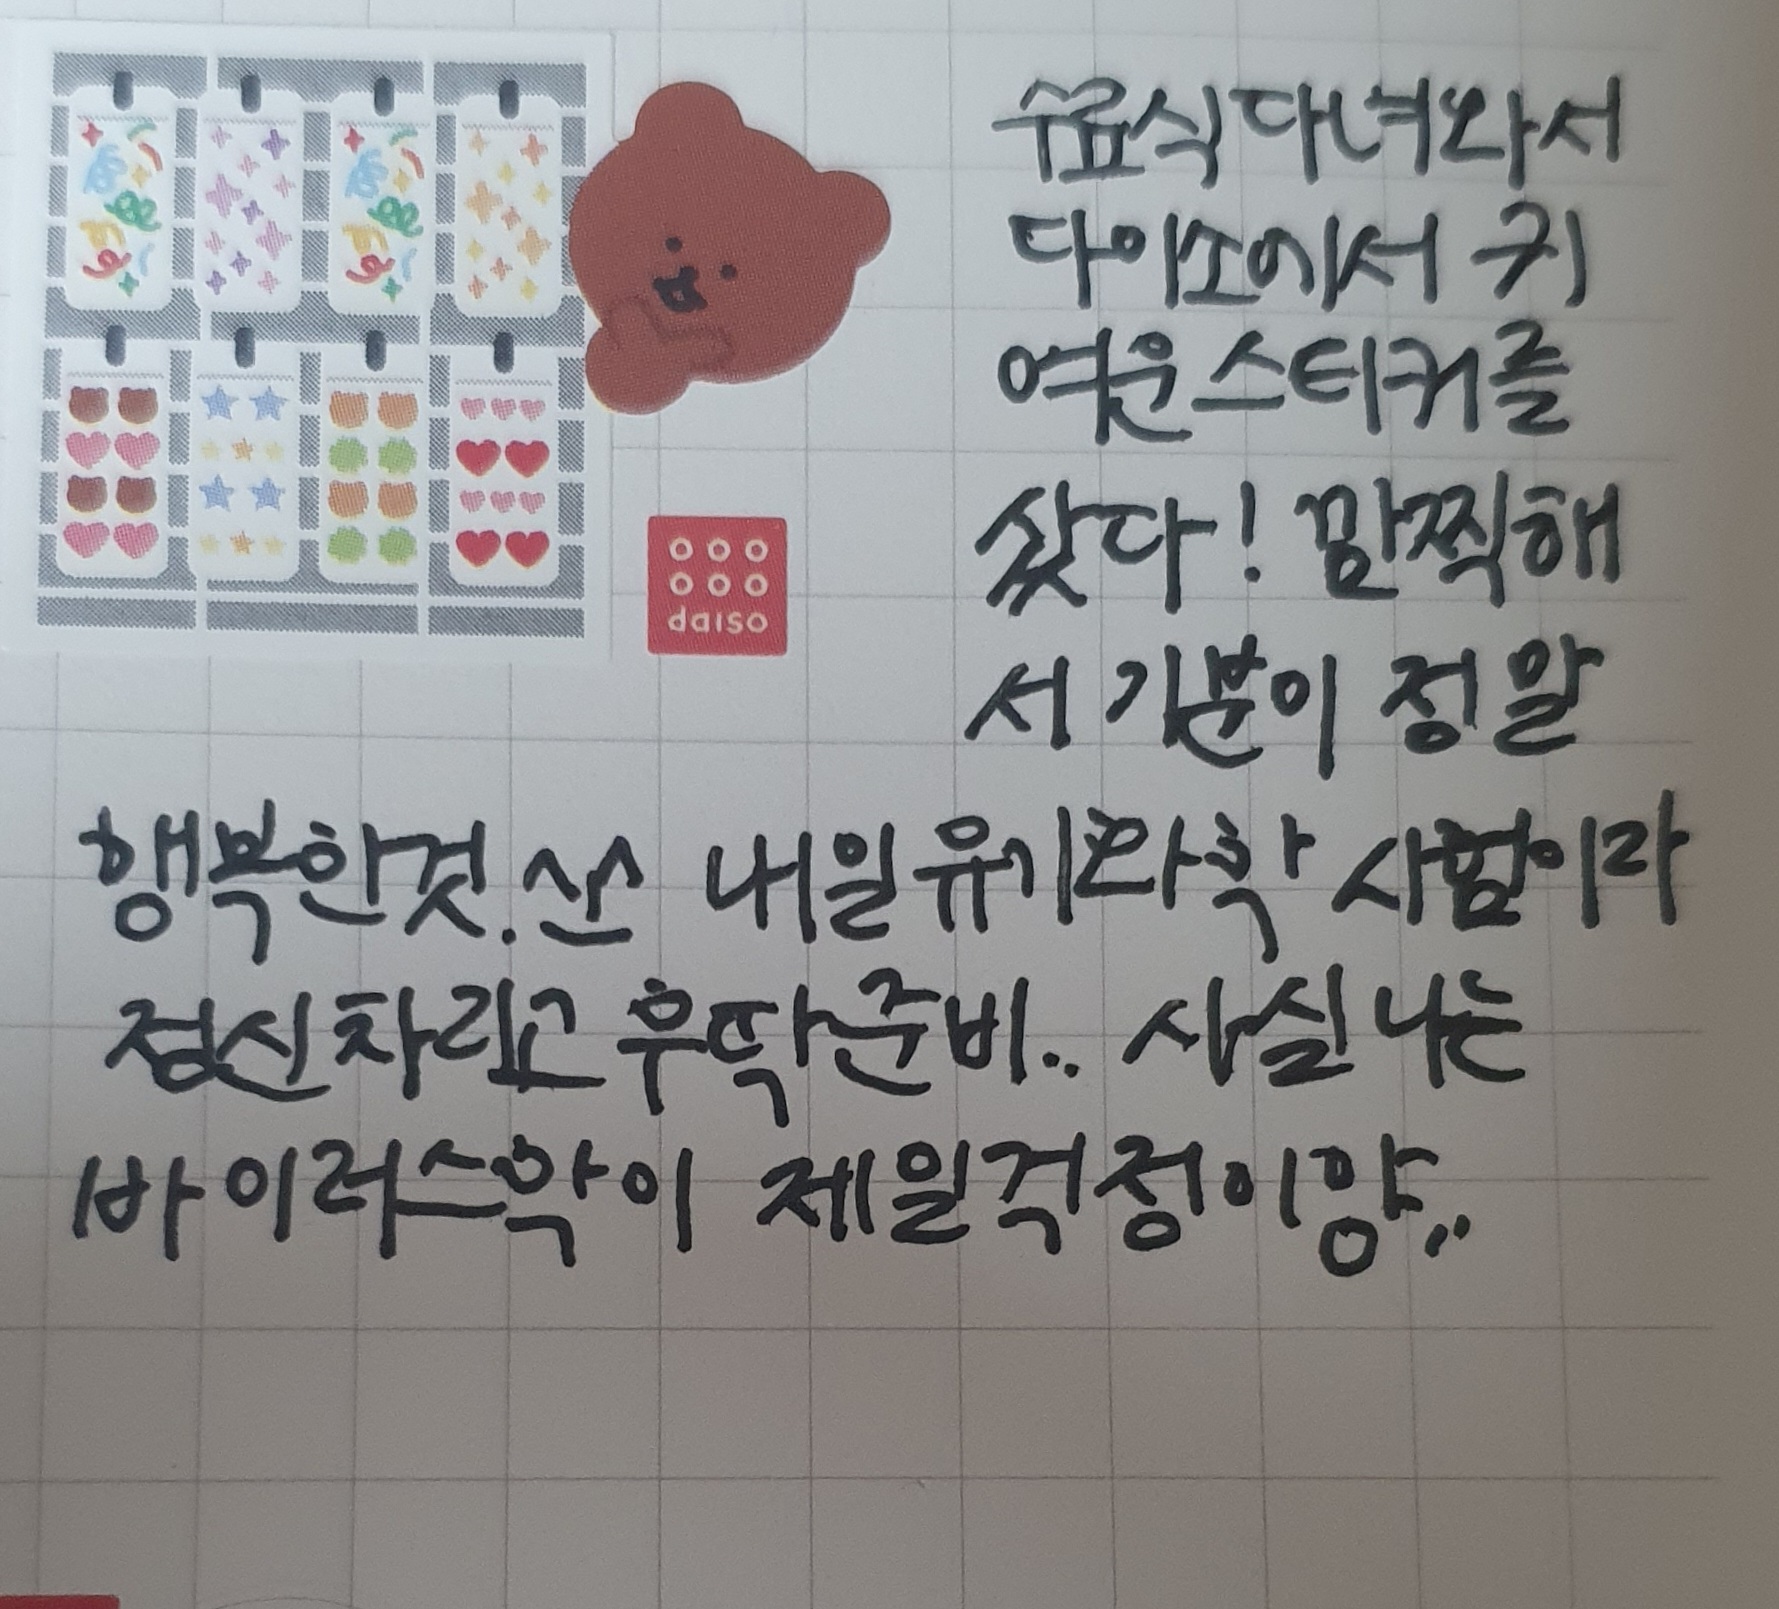 수료식 다녀와서
다이소에서 귀
여운 스티커를
샀다! 깜찍해
서 기분이 정말
daiso
행복한것. ^^ 내일 유기화학 시험이라
정신차리고 후딱준비.. 사실 나는
바이러스학이 제일걱정이양..